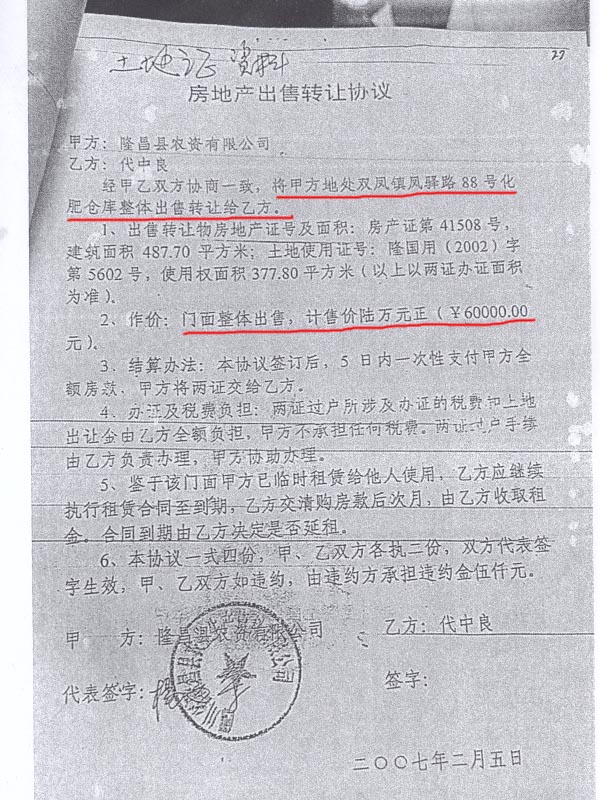 27
土地证资料
房地产出售转让协议
甲方：隆昌县农资有限公司
乙方：代中良
经甲乙双方协商一致，将甲方地处双凤镇凤驿路88号化
肥仓库整体出售转让给乙方。
1、出售转让物房地产证号及面积：房产证第41508号，
建筑面积487.70平方米；土地使用证号：隆国用（2002）字
第5602号，使用权面积377.80平方米（以上以两证办证面积
为准）。
2、作价：门面整体出售，计售价陆万元正（￥60000.00
元）。
3、结算办法：本协议签订后，5日内一次性支付甲方全
额房款，甲方将两证交给乙方。
4、办证及税费负担：两证过户所涉及办证的税费和土地
出让金由乙方全额负担，甲方不承担任何税费。两证过户手续
由乙方负责办理，甲方协助办理。
5、鉴于该门面甲方已临时租赁给他人使用，乙方应继续
执行租赁合同至到期，乙方交清购房款后次月，由乙方收取租
金。合同到期由乙方决定是否延租。
6、本协议一式四份，甲、乙双方各执二份，双方代表签
字生效，甲、乙双方如违约，由违约方承担违约金伍仟元。
甲 方：隆昌县农资有限公司 乙方：代中良
代表签字： 签字：
二〇〇七年二月五日